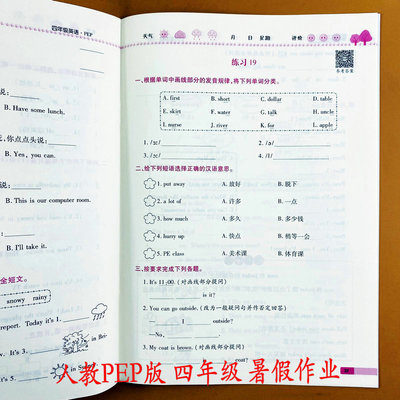 四年级英语·PEP
B. Have some lunch.
你点点头说:
B. Yes, you can.
B. This is our computer room.
B. I'll take it.
全短文。
snowy rainy
report. Today it's 1.
in Bei-
. It's 3.
in S
It's 5.
天气 月 日 星期 评价
参考答案
练习 19
一、根据单词中画线部分的发音规律,将下列单词分类。
A. first B. short C. dollar D. table
E. skirt F. water G. talk H. uncle
I. nurse J. river K. for L. apple
1. /ɜː/ 2. /ə/
3. /ɔː/ 4. /l/
二、给下列短语选择正确的汉语意思。
1. put away A. 放好 B. 脱下
2. a lot of A. 许多 B. 一点
3. how much A. 多久 B. 多少钱
4. hurry up A. 快点 B. 稍等一会
5. PE class A. 美术课 B. 体育课
三、按要求完成下列各题。
1. It's 11:00. (对画线部分提问)
is it?
2. You can go outside. (改为一般疑问句并作否定回答)
I outside?
—No,
3. My coat is brown. (对画线部分提问)
人教PEP版 四年级 暑假作业